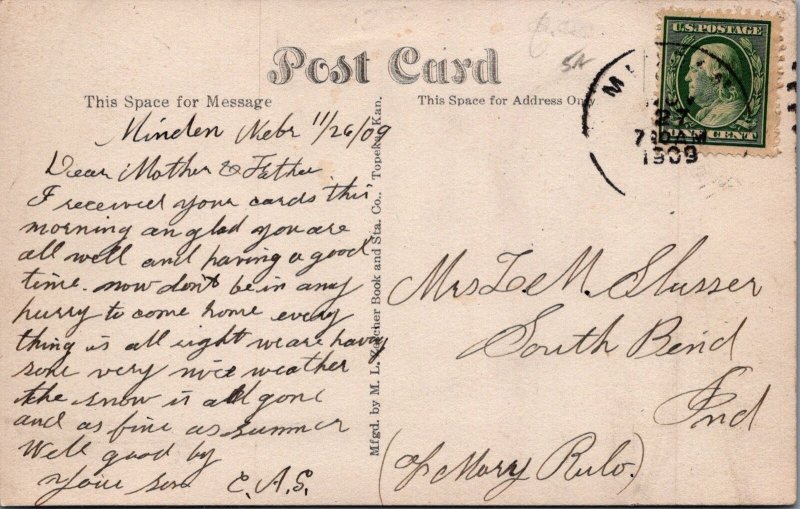 Post Card
This Space for Message
This Space for Address Only
U.S. POSTAGE
CENT
27
7 AM
1909
Minden Nebr 11/26/09
Dear Mother & Father
I received your cards this
morning an glad you are
all well and having a good
time. now don't be in any
hurry to come home every
thing is all right we are having
some very nice weather
the snow is all gone
and as fine as summer
Well good by
Your son E.A.S.
Mfgd. by M. L. Book and Sta. Co., Topeka, Kan.
Mrs L M. Slusser
South Bend
Ind
(c/o Mary Rulo.)